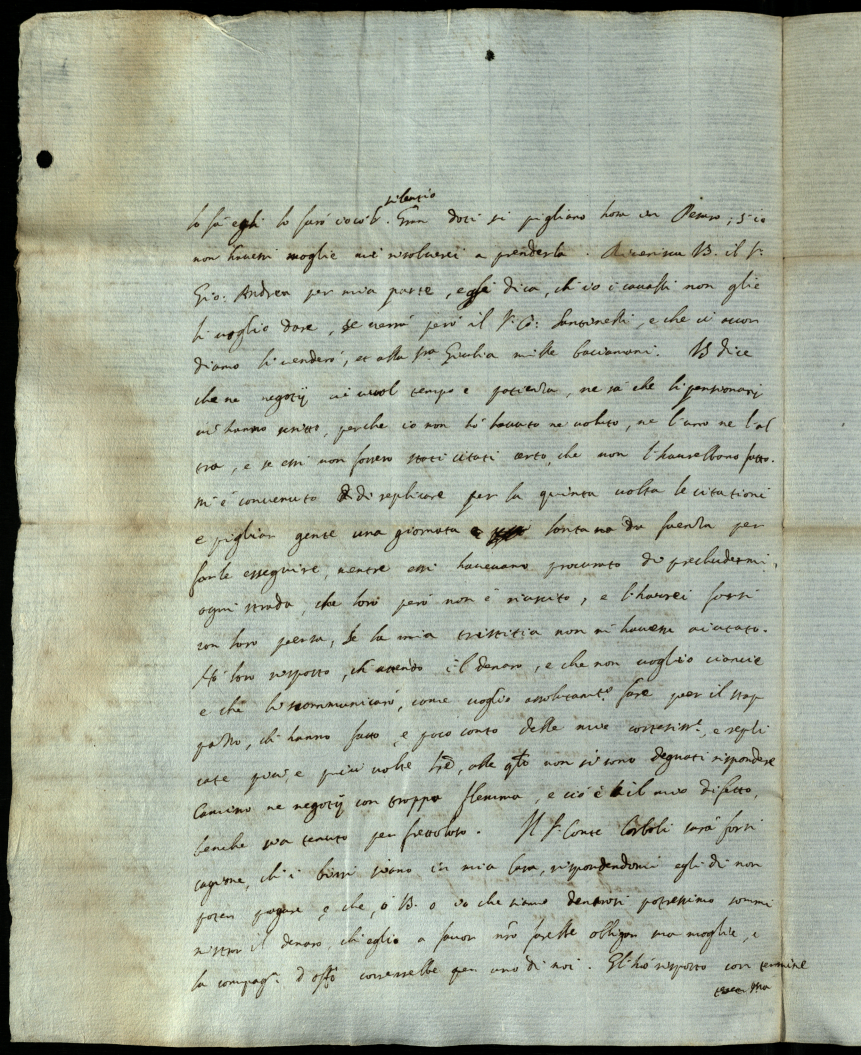 silentio
lo fà egli lo farò io cò B. Gran doti si pigliano hora in Pesaro; s'io
non havessi moglie mi risolverei a prenderla. Riverisca B. il S.r
Gio: Andrea per mia parte, e gli dica, ch'io i cavalli non glie
li voglio dare, se verrà però il S.r Co: Santinelli, e che ci accor
diamo li venderò, et alla S.ra Giulia mille baciamani. B dice
che ne negotij ci vuol tempo e patienza, ne sà che li pensionarij
mi hanno scritto, perche io non hò havuto ne voluto, ne l'uno ne l'al
tra, e se essi non fossero stati citati certo, che non l'haurebbono fatto.
Mi è convenuto di replicare per la quinta volta le citationi
e pigliar gente una giornata lontano da Faenza per
farle esseguire, mentre essi havevano procurato di precludermi
ogni strada, che loro però non è riuscito, e l'haurei forsi
con loro persa, se la mia tristitia non mi havesse aiutato.
Hò loro risposto, ch'attendo il denaro, e che non voglio ciancie
e che li scommunicarò, come voglio assolutam.te fare per il strap
che hanno fatto, e poco conto delle mie cortesiss.e, e repli
cate più e più volte lre, alle qli non si sono degnati rispondere
Camino ne negotij con troppa flemma, e ciò è il mio difetto,
benche sia tenuto per frettoloso. Il S.r Conte Corboli sarà forsi
cagione, ch'i birri siano in mia Casa, rispondendomi egli di non
poter pagare, e che, ò B. o io che siamo potressimo sommi
nistrar il denaro ch'eglio a favor nro farebbe obligar sua moglie, e
la compag.a d'off.o correrebbe per uno di noi. Gli hò risposto con termine
ma